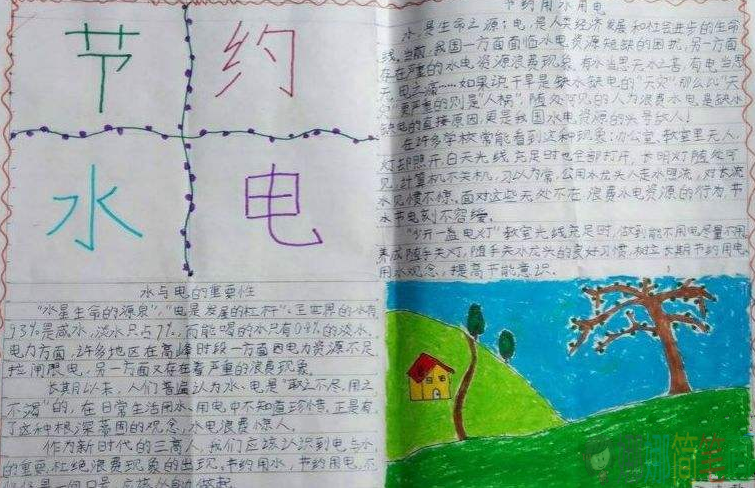 节约
水电
节约用水用电
水，是生命之源；电，是人类经济发展和社会进步的生命
线。当前，我国一方面面临水电资源短缺的困扰，另一方面
存在严重的水电资源浪费现象，有水当思无水之苦，有电当思
无电之痛……如果说干旱是缺水缺电的“天灾”，那么比“天
灾”更严重的则是“人祸”，随处可见的人为浪费水电，是缺水
缺电的直接原因，更是我国水电资源的头号敌人！
在许多学校常能看到这种现象：办公室、教室里无人，
灯却照开，白天光线充足时也全部打开，长明灯随处可
见，计算机不关机，习以为常，公用水龙头人走水照流，对长流
水见惯不惊。面对这些无处不在浪费水电资源的行为，节
水节电刻不容缓。
“少开一盏电灯”教室光线充足时，做到能不用电尽量不用，
养成随手关灯，随手关水龙头的良好习惯，树立长期节约用电、
用水观念，提高节能意识。
水与电的重要性
“水是生命的源泉”，“电是发展的杠杆”。全世界的水有
93%是咸水，淡水只占7%，而能喝的水只有0.8%的淡水。
电力方面，许多地区在高峰时段一方面因电力资源不足
拉闸限电，另一方面又存在着严重的浪费现象。
长期以来，人们普遍认为水、电是“取之不尽，用之
不竭”的，在日常生活用水、用电中不知道珍惜，正是有
了这种根深蒂固的观念，水电浪费惊人。
作为新时代的三高人，我们应该认识到电与水
的重要，杜绝浪费现象的出现。节约用水，节约用电，不
是一句口号，应该从
简笔